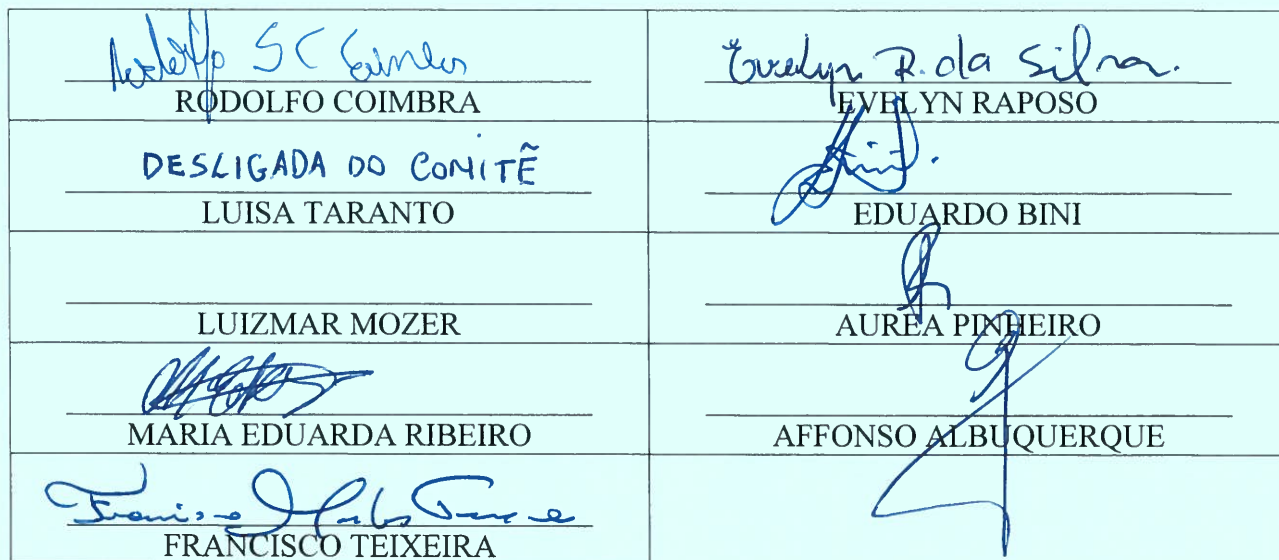 Rodolfo S C
Evelyn R. da Silva.
RODOLFO COIMBRA
EVELYN RAPOSO
DESLIGADA DO COMITÊ
LUISA TARANTO
EDUARDO BINI
LUIZMAR MOZER
AUREA PINHEIRO
MARIA EDUARDA RIBEIRO
AFFONSO ALBUQUERQUE
Francisco
FRANCISCO TEIXEIRA